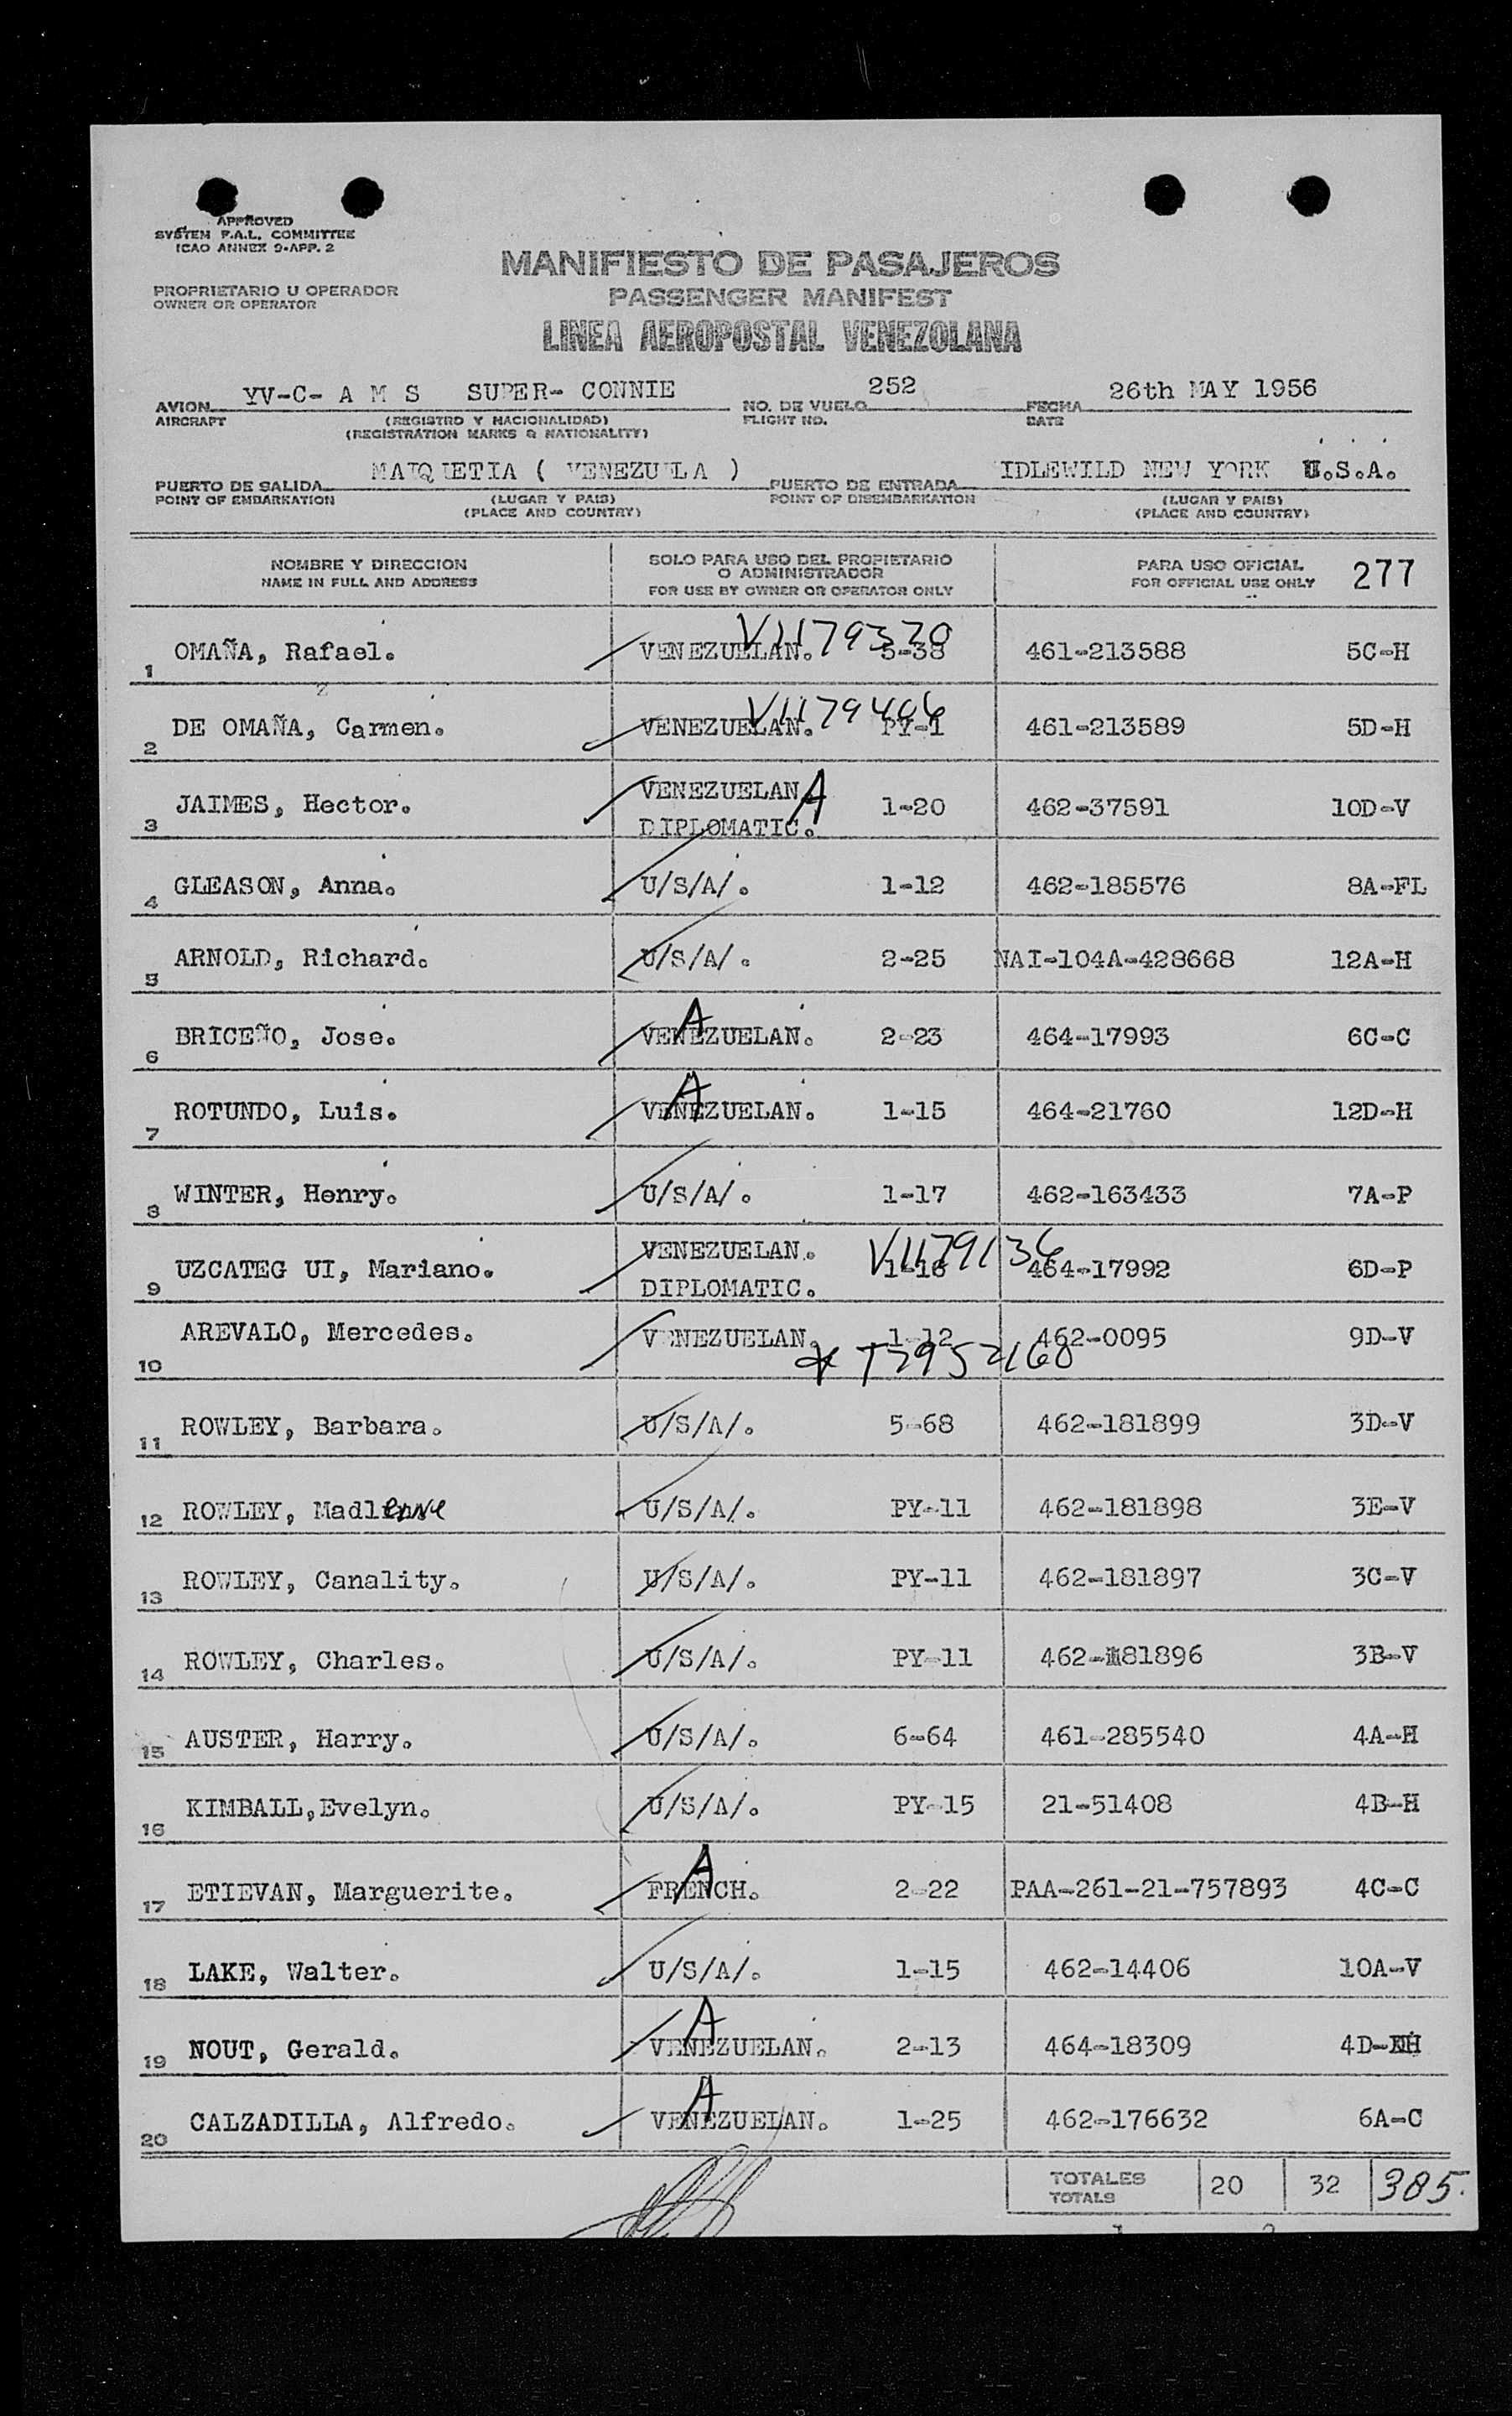 APPROVED
SYSTEM F.A.L. COMMITTEE
ICAO ANNEX 9-APP. 2
MANIFIESTO DE PASAJEROS
PROPRIETARIO U OPERADOR
OWNER OR OPERATOR
PASSENGER MANIFEST
LINEA AEROPOSTAL VENEZOLANA
AVION YV-C- A M S SUPER- CONNIE NO. DE VUELO 252 FECHA 26th MAY 1956
AIRCRAFT (REGISTRO Y NACIONALIDAD) FLIGHT NO. DATE
(REGISTRATION MARKS & NATIONALITY)
PUERTO DE SALIDA MAIQUETIA ( VENEZUELA ) PUERTO DE ENTRADA IDLEWILD NEW YORK U.S.A.
POINT OF EMBARKATION (LUGAR Y PAIS) POINT OF DISEMBARKATION (LUGAR Y PAIS)
(PLACE AND COUNTRY) (PLACE AND COUNTRY)
NOMBRE Y DIRECCION SOLO PARA USO DEL PROPIETARIO PARA USO OFICIAL 277
NAME IN FULL AND ADDRESS O ADMINISTRADOR FOR OFFICIAL USE ONLY
FOR USE BY OWNER OR OPERATOR ONLY
V1179320
1 OMAÑA, Rafael. VENEZUELAN. 5-38 461-213588 5C-H
V1179406
2 DE OMAÑA, Carmen. VENEZUELAN. PY-1 461-213589 5D-H
3 JAIMES, Hector. VENEZUELAN A 1-20 462-37591 10D-V
DIPLOMATIC.
4 GLEASON, Anna. U/S/A/. 1-12 462-185576 8A-FL
5 ARNOLD, Richard. U/S/A/. 2-25 NAI-104A-428668 12A-H
6 BRICEÑO, Jose. A VENEZUELAN. 2-23 464-17993 6C-C
7 ROTUNDO, Luis. A VENEZUELAN. 1-15 464-21760 12D-H
8 WINTER, Henry. U/S/A/. 1-17 462-163433 7A-P
9 UZCATEG UI, Mariano. VENEZUELAN. V1179136 1-16 464-17992 6D-P
DIPLOMATIC.
10 AREVALO, Mercedes. VENEZUELAN. 1-12 462-0095 9D-V
* T2952160
11 ROWLEY, Barbara. U/S/A/. 5-68 462-181899 3D-V
12 ROWLEY, Madlenne U/S/A/. PY-11 462-181898 3E-V
13 ROWLEY, Canality. U/S/A/. PY-11 462-181897 3C-V
14 ROWLEY, Charles. U/S/A/. PY-11 462-181896 3B-V
15 AUSTER, Harry. U/S/A/. 6-64 461-285540 4A-H
16 KIMBALL,Evelyn. U/S/A/. PY-15 21-51408 4B-H
17 ETIEVAN, Marguerite. A FRENCH. 2-22 PAA-261-21-757893 4C-C
18 LAKE, Walter. U/S/A/. 1-15 462-14406 10A-V
19 NOUT, Gerald. A VENEZUELAN. 2-13 464-18309 4D-H
20 CALZADILLA, Alfredo. A VENEZUELAN. 1-25 462-176632 6A-C
TOTALES 20 32 385.
TOTALS